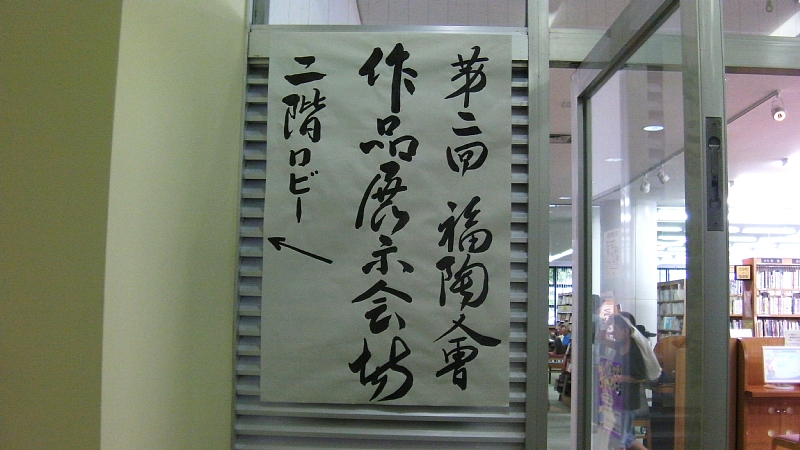 第二回 福陶會
作品展示会場
二階ロビー